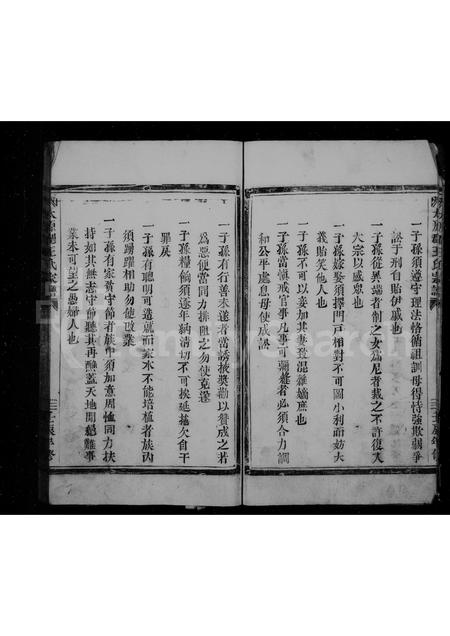 一子孫須遵守理法恪循祖訓毋得恃強欺弱爭
訟于刑台貽伊戚也
一子孫從異端者削之女為尼者裁之不許復入
大宗以感眾也
一子孫嫁娶須擇門戶相對不可圖小利而妨大
義貽笑他人也
一子孫不可以妾加其妻登混雜嫡庶也
一子孫當慎戒官事凡事可彌縫者必須合力調
和公平處息毋使成訟
一子孫有行善未遂者當誘掖獎勸以贊成之若
為惡便當同力排阻之勿使克遂
一子孫糧餉須逐年納清切不可挨延拖欠自干
罪戾
一子孫有聰明可造就而家水不能培植者族內
須踴躍相助勿使改業
一子孫有家貧守節者族中須加意周恤同力扶
持如其無志守節聽其再醮蓋天地間絕難事
業未可望之愚婦人也